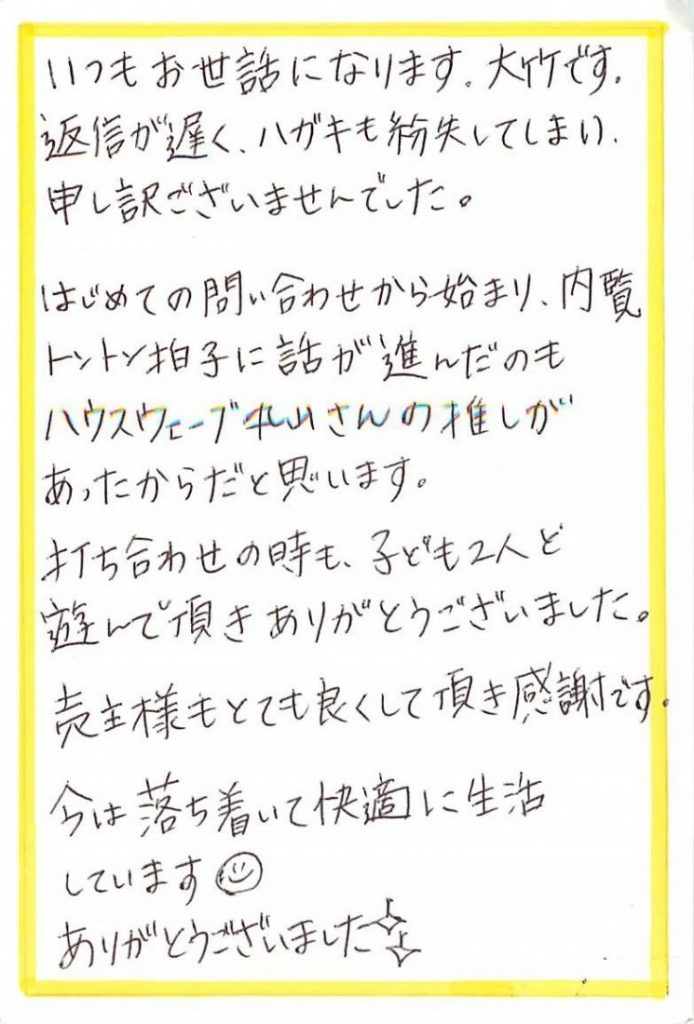 いつもお世話になります。大竹です。
返信が遅く、ハガキも紛失してしまい、
申し訳ございませんでした。
はじめての問い合わせから始まり、内覧
トントン拍子に話が進んだのも
ハウスウェーブ丸山さんの推しが
あったからだと思います。
打ち合わせの時も、子ども2人と
遊んで頂きありがとうございました。
売主様もとても良くして頂き感謝です。
今は落ち着いて快適に生活
しています☺
ありがとうございました